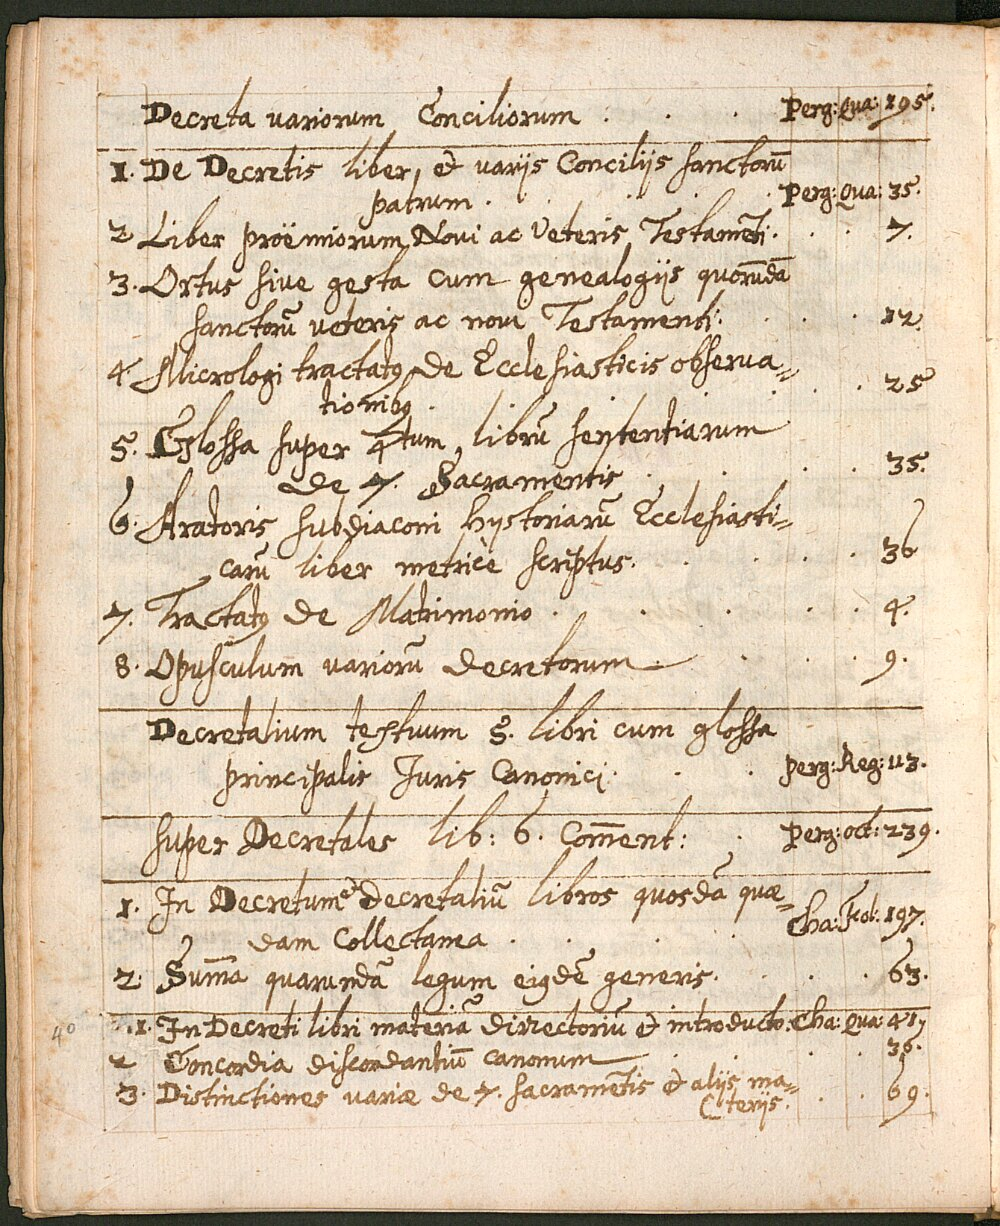 Decreta variorum Conciliorum . . . Perg: Qua: 195.
1. De Decretis liber, et varijs Concilijs sanctorū
patrum . . . . . Perg: Qua: 35.
2 Liber proëmiorum Novi ac Veteris Testamēti. . . 7.
3. Ortus sive gesta cum genealogijs quorūdā
sanctorū veteris ac novi Testamenti. . . . 12.
4. Micrologi tractatꝰ de Ecclesiasticis observa=
tionibꝰ . . . . . 25
5. Glossa super 4tum librū sententiarum
de 7. Sacramentis . . . . 35.
6. Aratoris subdiaconi hystoriarū Ecclesiasti=
carū liber metricè scriptus. . . . . 36
7. Tractatꝰ de Matrimonio . . . . . 4.
8. Opusculum variorū decretorum . . . 9.
Decretalium textuum 5. libri cum glossa
principalis Juris Canonici. . . perg: Reg: 113.
super Decretales lib: 6. Com̄ent: . Perg: oct: 239.
1. In Decretum et Decretaliū libros quosdā quæ=
dam Collectanea . . . . Cha: Fol: 197.
2. Sum̄a quarundā legum eiꝰdē generis. . . . 63.
40
1. In Decreti libri materiā directoriū et introducto. Cha: Qua: 41
2 Concordia discordantiū canonum . . . . 36.
3. Distinctiones variæ de 7. sacramētis et alijs ma=
terijs. . . 69.